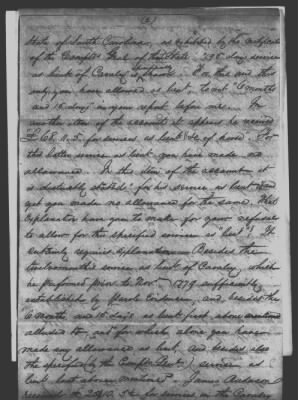 (2)
State of South Carolina, as exhibited by the certificate
of the Comptr Genl of that State "198 days services
as lieut of Cavalry is proven". For this and this
only you have allowed as lieut. to wit "6 months
and 15 days" in your report before me. In
another item of the account it appears he received
"£68.11.5. for services as lieut &c of horse". For
this latter service as lieut you have made no
allowance. In this item of the account it
is distinctly stated "for his services as lieut" and
yet you made no allowance for the same. What
explanation have you to make for your refusal
to allow for the specified service as "lieut"? It
certainly requires explanation. Besides the
aforementioned service as lieut of Cavalry, which
he performed prior to Novr 1779 sufficiently
established by parole evidence, and besides the
6 months and 15 days as lieut first above mentioned
alluded to, and for which alone you have
made any allowance as lieut, and besides also
the specified (by the Comptr Genl) service as
lieut last above mentioned - James Anderson
received the for services in the Cavalry